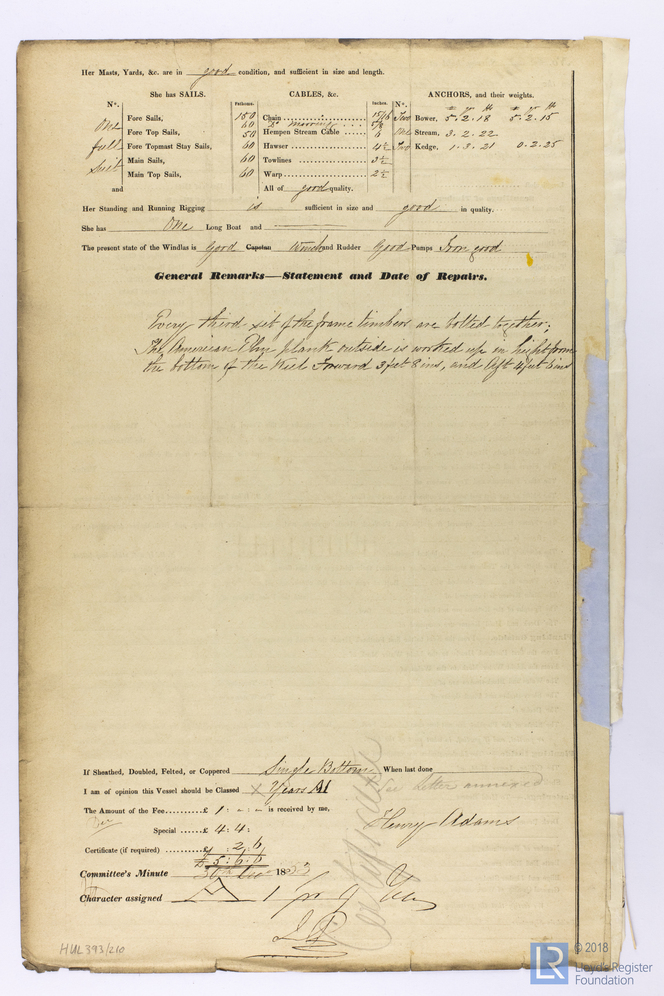 Her Masts, Yards, &c. are in good condition, and sufficient in size and length.
She has SAILS.
CABLES, &c.
ANCHORS, and their weights.
N°.
Fathoms.
Inches.
N°.
One
full
suit
and
Fore Sails,
Fore Top Sails,
Fore Topmast Stay Sails,
Main Sails,
Main Top Sails,
150 Chain 15/16
60 Do mooring
50 Hempen Stream Cable 6
60 Hawser 4½
60 Towlines 3½
60 Warp 2½
All of good quality.
Two Bower, 5.2.18 5.2.15
One Stream, 3.2.22
Two Kedge, 1.3.21 0.2.25
Her Standing and Running Rigging is sufficient in size and good in quality.
She has One Long Boat and
The present state of the Windlas is Good Capstan Winch and Rudder Good Pumps Iron good
General Remarks—Statement and Date of Repairs.
Every third set of the frame timbers are bolted together;
The American Elm plank outside is worked up in height from
the bottom of the Keel Forward 3 feet 8 ins, and Aft 4 feet 6 ins
If Sheathed, Doubled, Felted, or Coppered Single Bottom When last done
I am of opinion this Vessel should be Classed X Years A1 See letter annexed
The Amount of the Fee..........£ 1 : - : - is received by me,
Henry Adams
Special ......£ 4 : 4 :
Certificate (if required) ..........£ : 2 : 6
£ 5 : 6 : 6
Committee's Minute 30th 18
Character assigned A 1
Certificate
HUL393/210
LR
© 2018
Lloyd's Register
Foundation